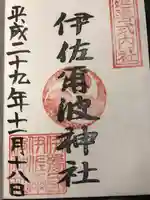 伊佐爾波神社
平成二十九年十一月十八日